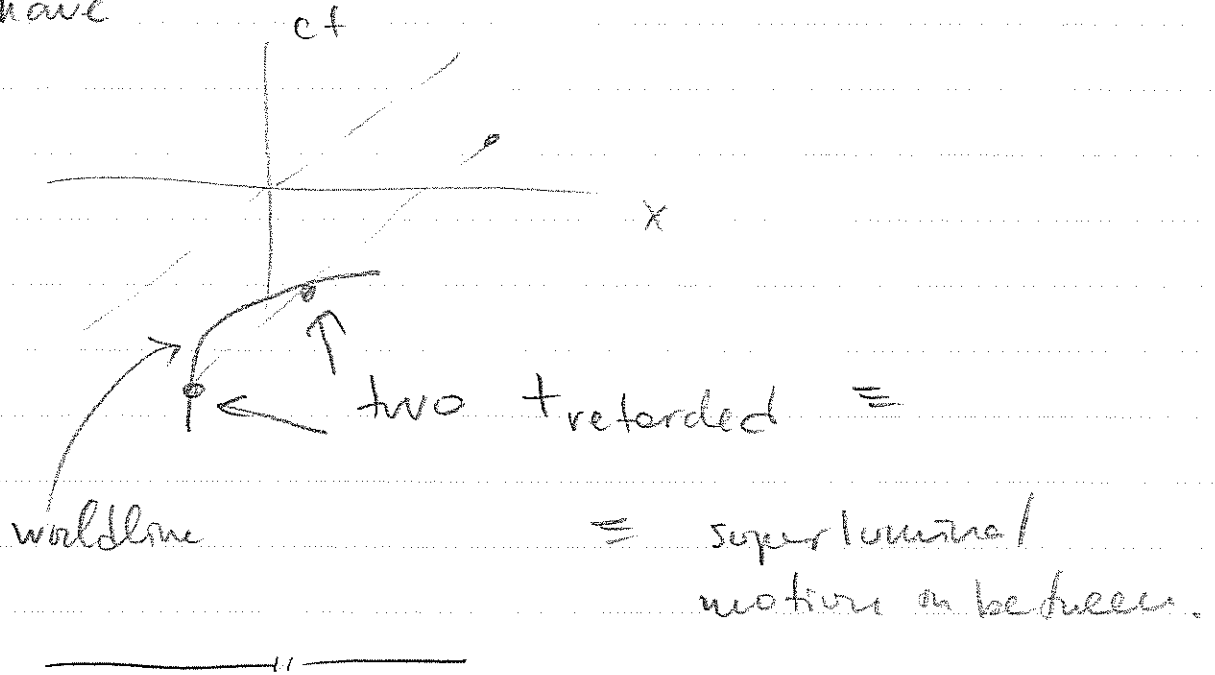 have
ct
x
two t retarded ≡
worldline
≡ superluminal
motion in between.